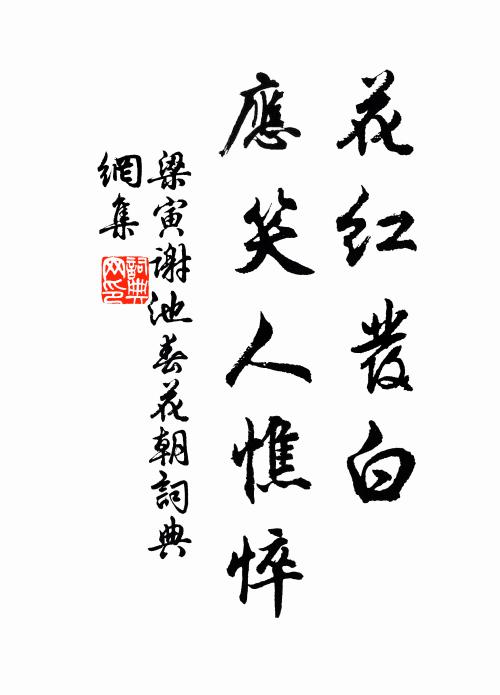 花红發白
應笑人憔悴
梁寅謝池春花朝詞典
網集
詞典
网印